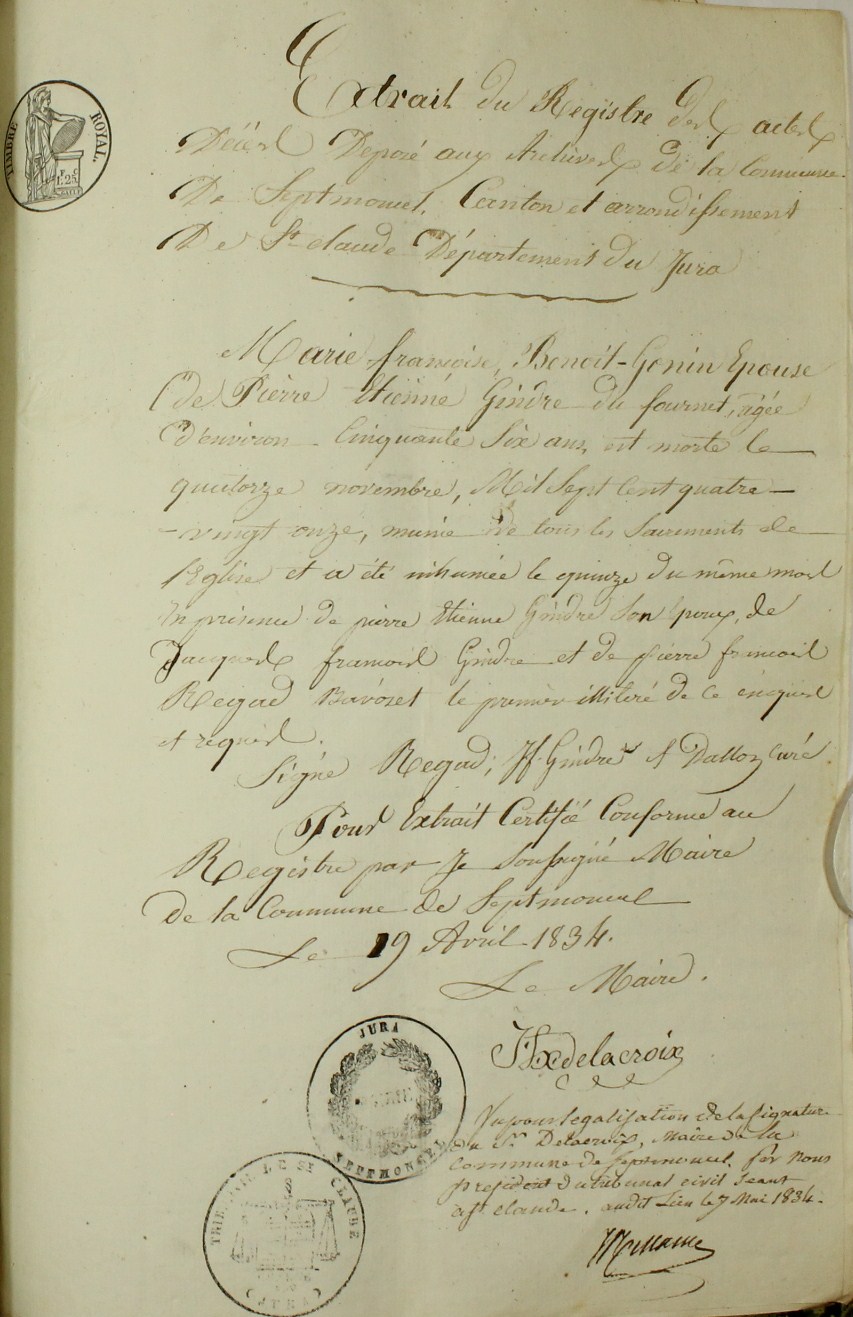 TIMBRE ROYAL.
1.F 25.C
Extrait du Registre des actes
Décès Déposé aux Archives de la Commune
De Septmoncel, Canton et arrondissement
De St claude Département du Jura
Marie françoise, Benoit-Gonin Epouse
De Pierre Etienne Gindre du fournet, agée
d'environ Cinquante Six ans, est morte le
quatorze novembre, Mil Sept Cent quatre-
-vingt onze, munie de tous les Sacrements de
l'Eglise et a été inhumée le quinze du même mois
En présence de pierre Etienne Gindre Son Epoux, de
Jacques francois Gindre et de pierre francois
Regad Bavozet le premier illiteré de ce enquis
et requis.
Signé Regad, Jf. Gindre et Dalloz curé.
Pour Extrait Certifié Conforme au
Registre par Je Soussigné Maire
De la Commune de Septmoncel
Le 19 Avril 1834.
Le Maire.
delacroix
JURA
SEPTMONCEL
Vu pour légalisation de la Signature
du Sr. Delacroix, Maire de la
Commune de Septmoncel, par Nous
président du tribunal civil Séant
à St claude. audit Lieu le 7 Mai 1834.
TRIBUNAL DE ST CLAUDE